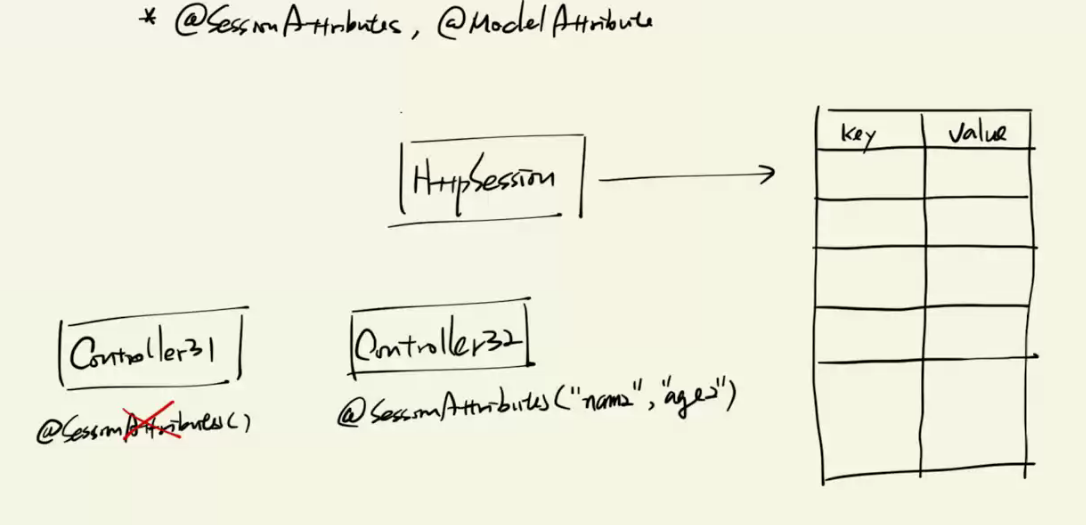 * @SessionAttributes, @ModelAttribute
key value
HttpSession
Controller31 Controller32
@SessionAttributes() @SessionAttributes("name2","age2")